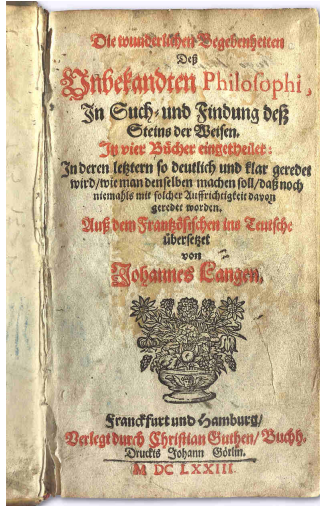 Die wunderlichen Begebenheiten
Deß
Unbekandten Philosophi,
In Such- und Findung deß
Steins der Weisen.
In vier Bücher eingetheilet:
In deren letztern so deutlich und klar geredet
wird/ wie man denselben machen soll/ daß noch
niemahls mit solcher Auffrichtigkeit davon
geredet worden.
Auß dem Frantzösischen ins Teutsche
übersetzet
von
Johannes Langen.
Franckfurt und Hamburg/
Verlegt durch Christian Guthen/ Buchh.
Druckts Johann Görlin.
M DC LXXIII.